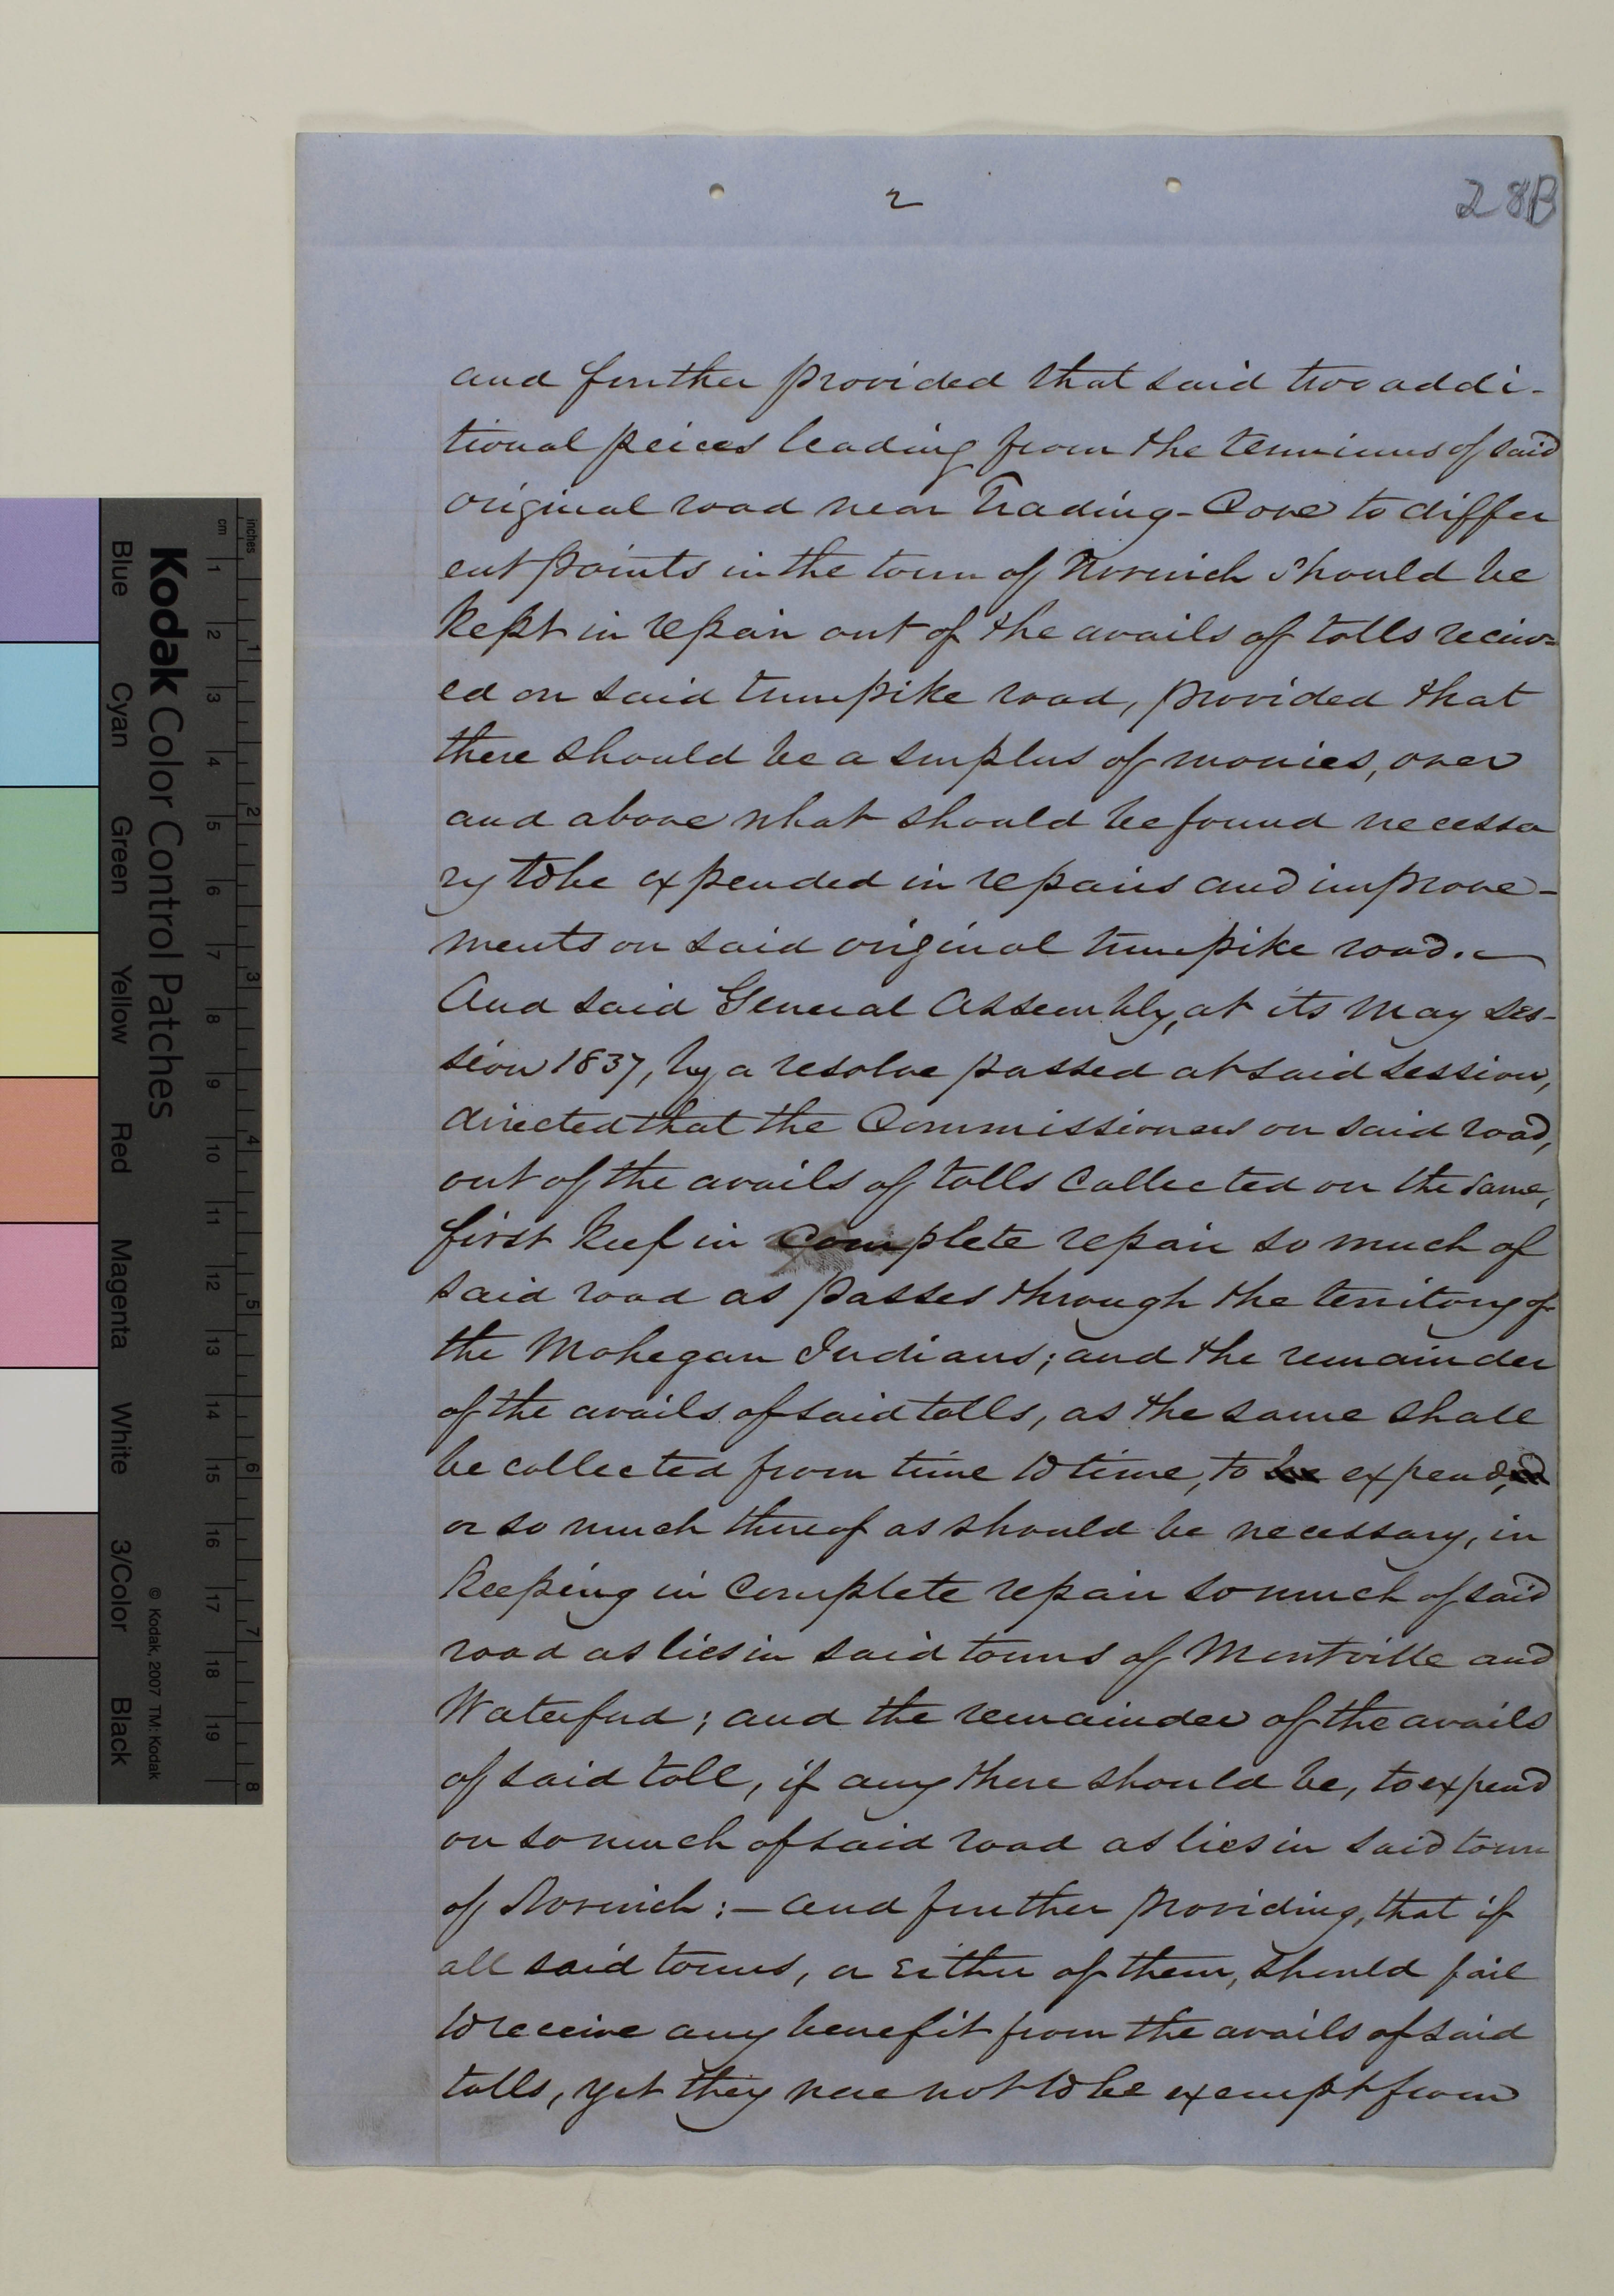 2
28B
and further provided that said two addi-
tional peices leading from the terminus of said
original road near Trading-Cove to differ
ent points in the town of Norwich should be
kept in repair out of the avails of tolls reciev=
ed on said turnpike road, provided that
there should be a surplus of monies, over
and above what should be found necessa
ry to be expended in repairs and improve-
ments on said original turnpike road.
And said General Assembly, at its May ses-
sion 1837, by a resolve passed at said session,
directed that the Commissioners on said road,
out of the avails of tolls collected on the same,
first keep in complete repair so much of
said road as passes through the territory of
the Mohegan Indians; and the remainder
of the avails of said tolls, as the same shall
be collected from time to time, to be expended
or so much thereof as should be necessary, in
keeping in complete repair so much of said
road as lies in said towns of Montville and
Waterford; and the remainder of the avails
of said toll, if any there should be, to expend
on so much of said road as lies in said town
of Norwich:- and further providing, that if
all said towns, or either of them, should fail
to receive any benefit from the avails of said
tolls, yet they were not to be exempt from
Kodak Color Control Patches
Blue Cyan Green Yellow Red Magenta White 3/Color Black
© Kodak, 2007 TM: Kodak
inches 1 2 3 4 5 6 7 8
cm 1 2 3 4 5 6 7 8 9 10 11 12 13 14 15 16 17 18 19